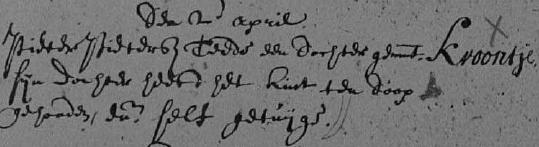 Den 2en april
Pieter Pietersz Tedde een dochter genmt. Kroontje,
sijn dochter heeft het kint ten doop
gehouden, du: self getuijge.